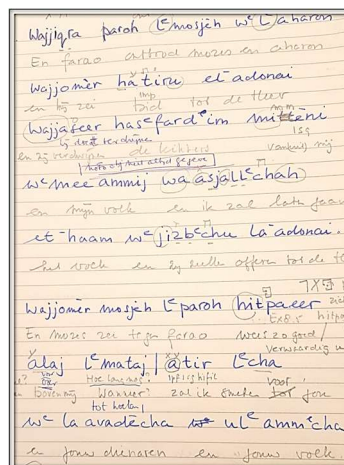 wajjiqra paroh lᵉmosjeh wᵉlᵉaharon
En farao ontbood mozes en aharon
wajjomèr hatiru el-adonai
en hij zei bid tot de Heer
wajjaseer hasᵉfardᵉim mimèni
hij doet verdwijnen
en hij verdwijnen de kikkers vanuit mij
wᵉmeeammij waasjalᵉchah
en mijn volk en ik zal laten gaan
et-haam wᵉjizbᵉchu la-adonai.
het volk en zij zullen offeren tot de
wajjomèr mosjeh lᵉparoh hitpaeer
Ex 8.5
En mozes zei tegen farao wees zo goed
alaj lᵉmataj | atir lᵉcha
Hoe lang nog? hifil voor
boven mij Wanneer? zal ik smeken tot jou
tot hoelang
wᵉ la avadècha ulᵉammᵉcha
en jouw dienaren en jouw volk.